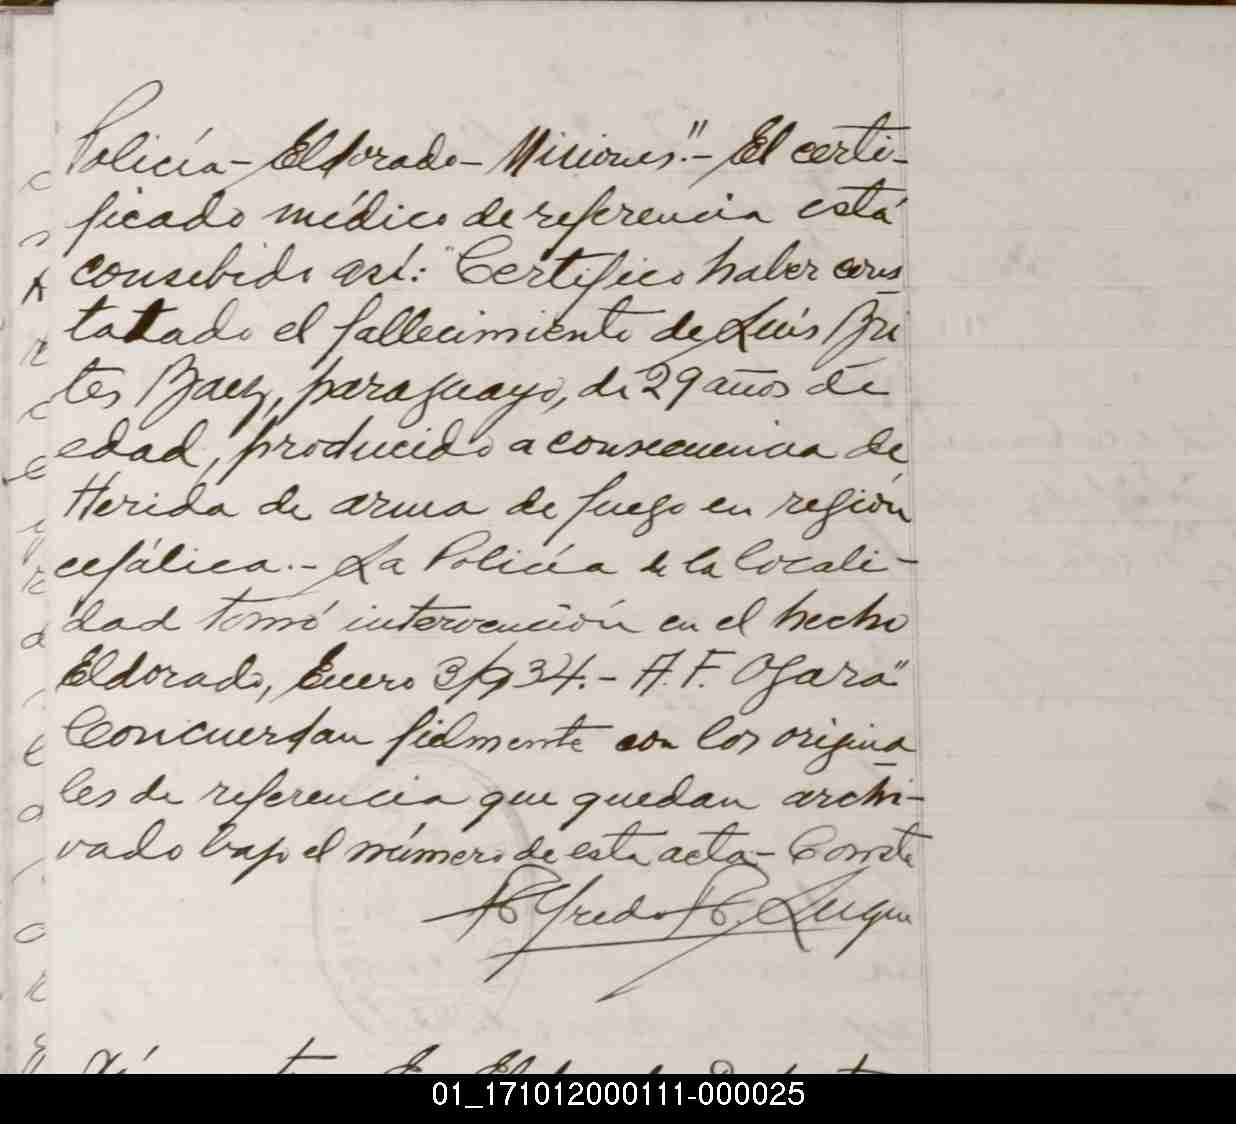 Policía - Eldorado - Misiones".- El certi-
ficado médico de referencia está
consebido así: "Certifico haber cons
tatado el fallecimiento de Luis Bri
tes Baez, paraguayo, de 29 años de
edad, producido a consecuencia de
Herida de arma de fuego en región
cefálica.- La Policía de la locali-
dad tomó intervención en el hecho
Eldorado, Enero 3/934.- A. F. Ogara"
Concuerdan fielmente con los origina
les de referencia que quedan archi-
vado bajo el número de esta acta - Conste
Alfredo R. Luque
01_171012000111-000025